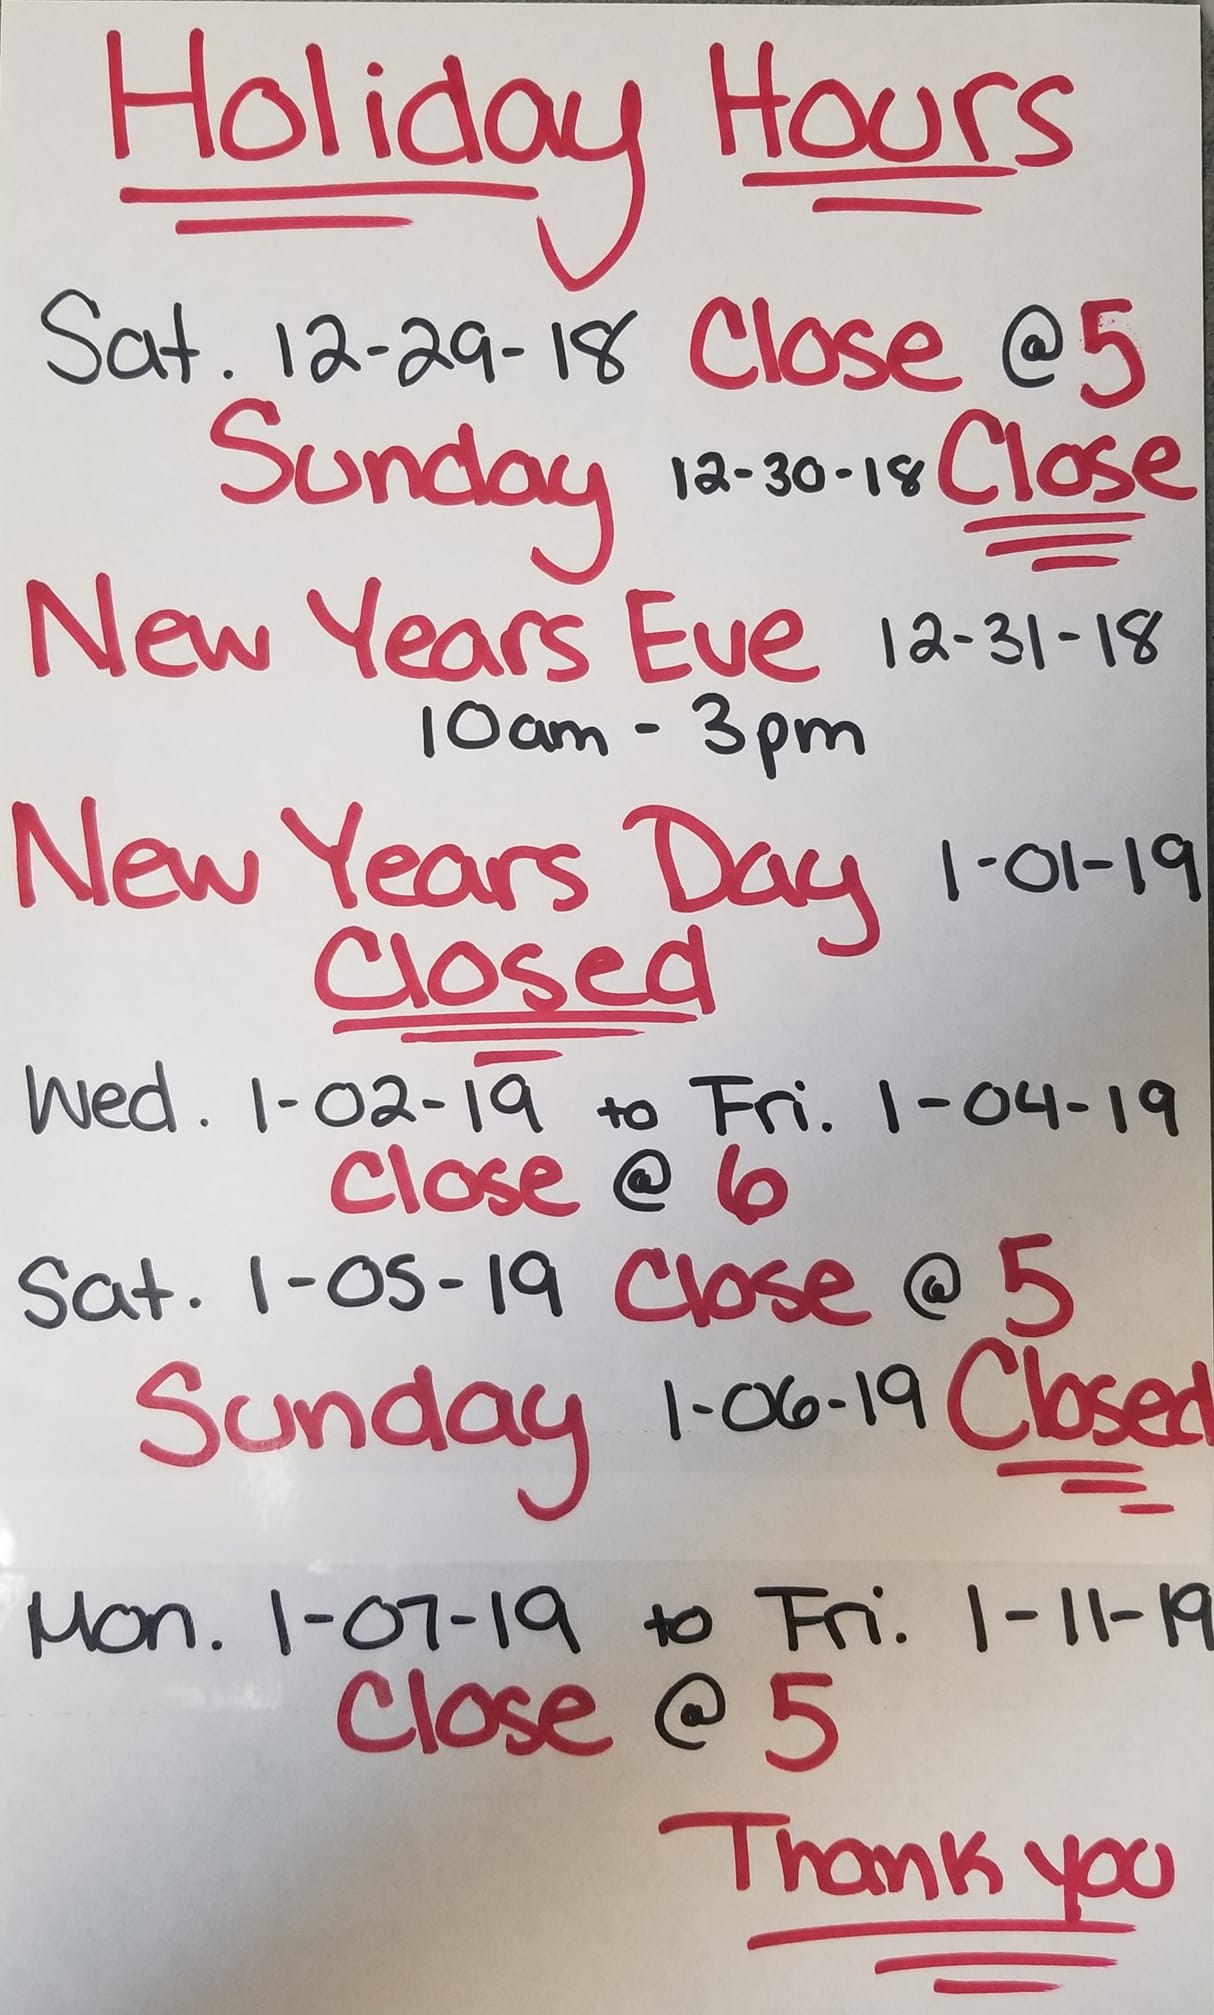 Holiday Hours
Sat. 12-29-18 Close @ 5
Sunday 12-30-18 Close
New Years Eve 12-31-18
10am - 3pm
New Years Day 1-01-19
Closed
Wed. 1-02-19 to Fri. 1-04-19
Close @ 6
Sat. 1-05-19 Close @ 5
Sunday 1-06-19 Closed
Mon. 1-07-19 to Fri. 1-11-19
Close @ 5
Thank you